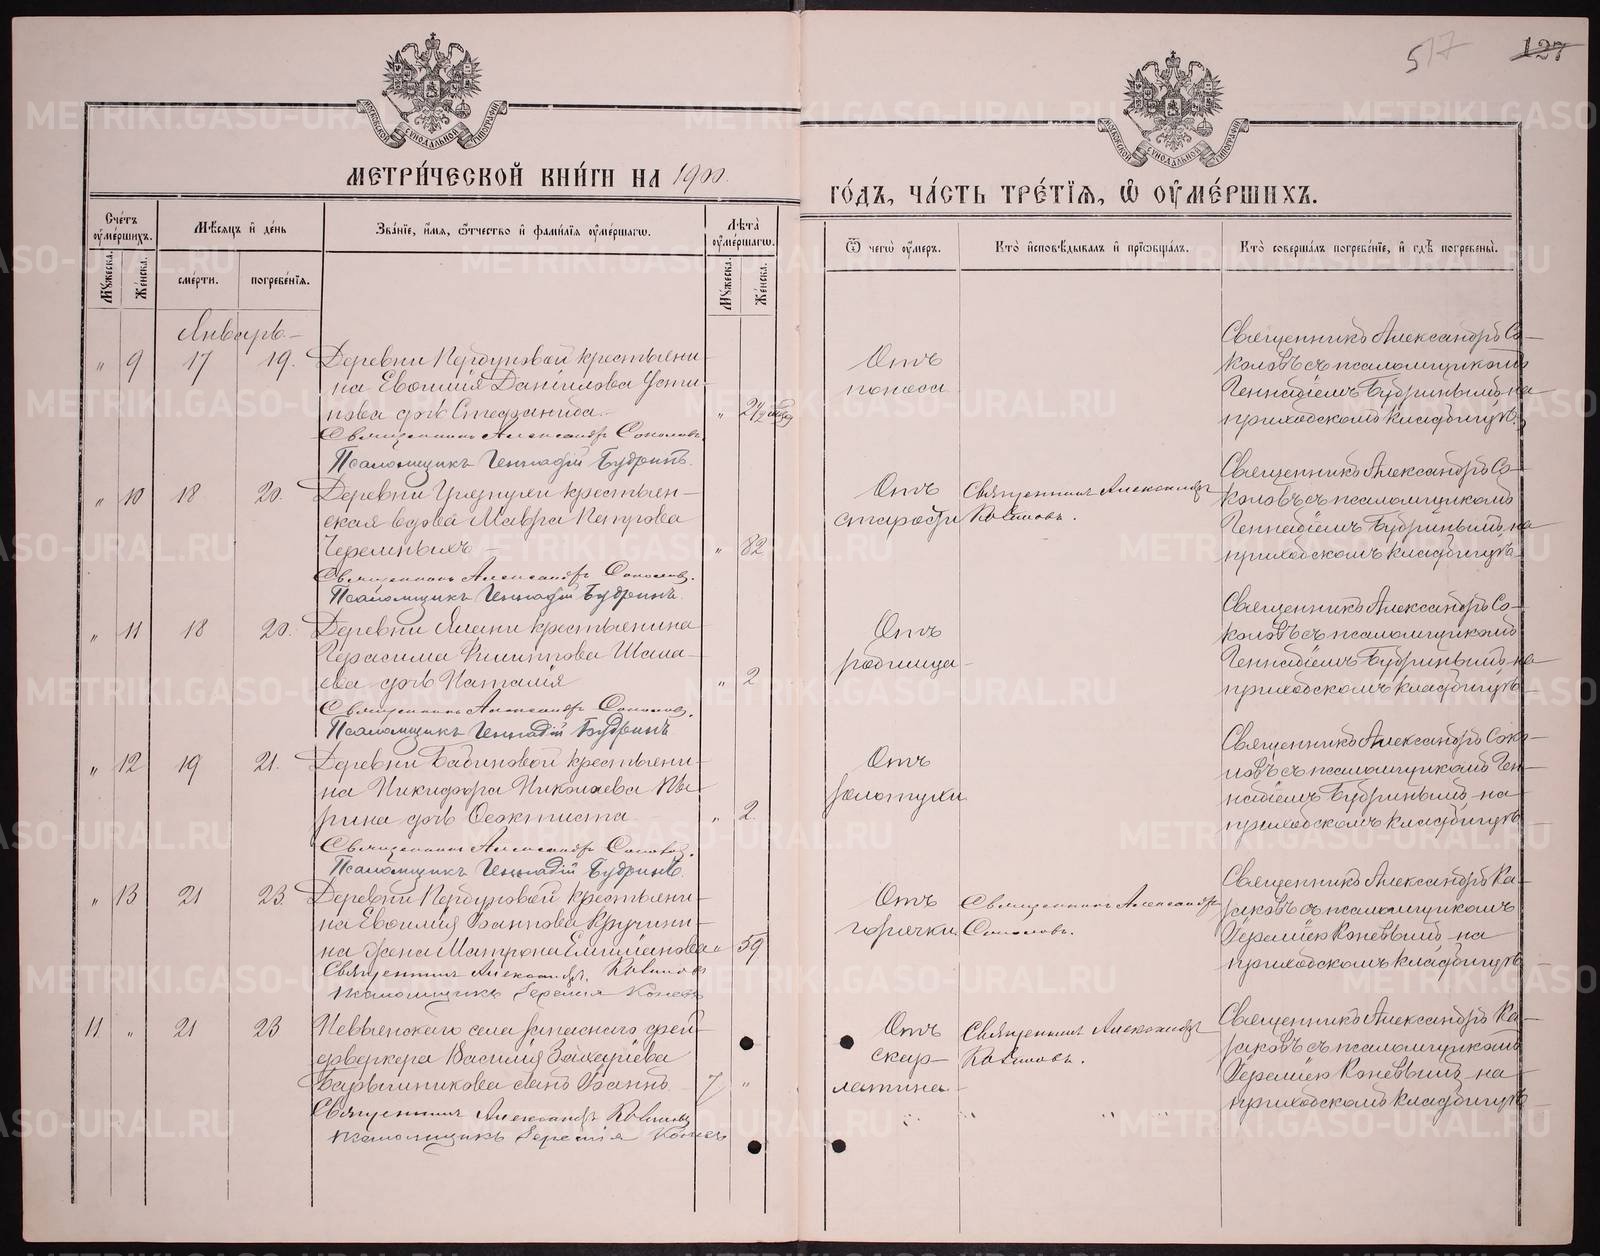 517
127
МОСКОВСКОЙ СѴНОДАЛЬНОЙ ТИПОГРАФІИ
МОСКОВСКОЙ СѴНОДАЛЬНОЙ ТИПОГРАФІИ
МЕТРИ́ЧЕСКОЙ КНИ́ГИ НА 1900.
ГО́ДЪ, ЧА́СТЬ ТРЕ́ТІѦ, Ѡ҆ ОУ҆МЕ́РШИХЪ.
Сче́тъ оу҆ме́ршихъ.
Мꙋ́жеска.
Же́нска.
Мѣ́сѧцъ и҆ де́нь
сме́рти.
погребе́нїѧ.
Зва́нїе, и҆́мѧ, ѻ҆́тчество и҆ фами́лїѧ оу҆ме́ршагѡ.
Лѣ́та оу҆ме́ршагѡ.
Мꙋ́жеска.
Же́нска.
Ѿ чегѡ̀ оу҆́меръ.
Кто̀ и҆сповѣ́дывалъ и҆ прїѡбща́лъ.
Кто̀ соверша́лъ погребе́нїе, и҆ гдѣ̀ погребены̀.
Январь
" 9 17 19. Деревни крестьяни-
на Евѳимія Данiилова Усти-
нова дочь Стефанида " 2 1/2
Священникъ Александръ Соколовъ.
Псаломщикъ Геннадій Будринъ.
Отъ
поноса
Священникъ Александръ Со-
коловъ съ псаломщикомъ
Геннадіемъ Будринымъ на
приходскомъ кладбищѣ.
" 10 18 20. Деревни крестьян-
ская вдова Мавра Петрова
Черемныхъ " 82
Священникъ Александръ Соколовъ.
Псаломщикъ Геннадій Будринъ.
Отъ
старости
Священникъ Александръ
Священникъ Александръ Со-
коловъ съ псаломщикомъ
Геннадіемъ Будринымъ на
приходскомъ кладбищѣ
" 11 18 20. Деревни крестьянина
Герасима Филиппова Шама-
ева дочь Наталія " 2
Священникъ Александръ Соколовъ.
Псаломщикъ Геннадій Будринъ
Отъ
родимца
Священникъ Александръ Со-
коловъ съ псаломщикомъ
Геннадіемъ Будринымъ на
приходскомъ кладбищѣ
" 12 19 21. Деревни Бабиновой крестьяни-
на Никифора Николаева
дочь Ѳеоктиста " 2.
Священникъ Александръ Соколовъ.
Псаломщикъ Геннадій Будринъ.
Отъ
золотухи
Священникъ Александръ Соко-
ловъ съ псаломщикомъ Ген-
надіемъ Будринымъ на
приходскомъ кладбищѣ
" 13 21 23. Деревни крестьяни-
на Евѳимія Іоаннова Кручини-
на жена Матрона Емиліанова " 59
Священникъ Александръ
псаломщикъ Іеремія Коневъ
Отъ
горячки
Священникъ Александръ
Соколовъ.
Священникъ Александръ Ка-
заковъ съ псаломщикомъ
Іереміею Коневымъ на
приходскомъ кладбищѣ
11 " 21 23 Невьянскаго села запаснаго фей-
дверкера Василія Захаріева
Барышникова сынъ Іоаннъ 7 "
Священникъ Александръ
псаломщикъ Іеремія Коневъ
Отъ
скар-
латины
Священникъ Александръ
Священникъ Александръ Ка-
заковъ съ псаломщикомъ
Іереміею Коневымъ на
приходскомъ кладбищѣ
METRIKI.GASO-URAL.RU